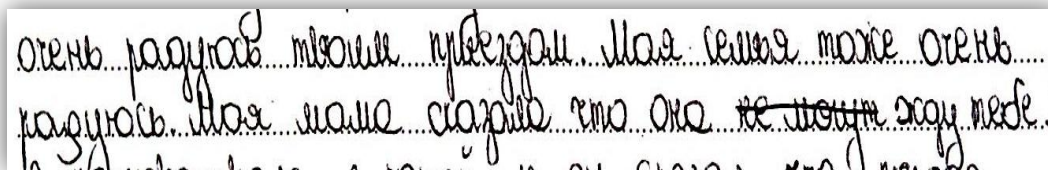 очень радуюсь твоим приездам. Моя семья тоже очень
радуюсь. Моя мама сказала что она не могут жду тебе.